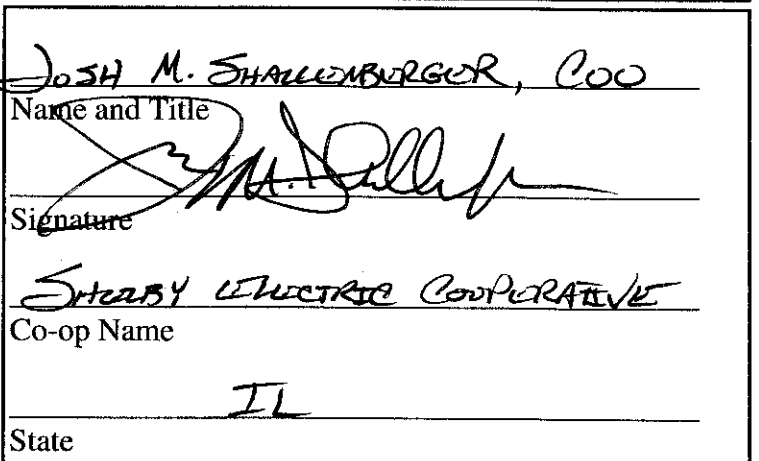 JOSH M. SHALLENBERGER, COO
Name and Title
Signature
SHELBY ELECTRIC COOPERATIVE
Co-op Name
IL
State